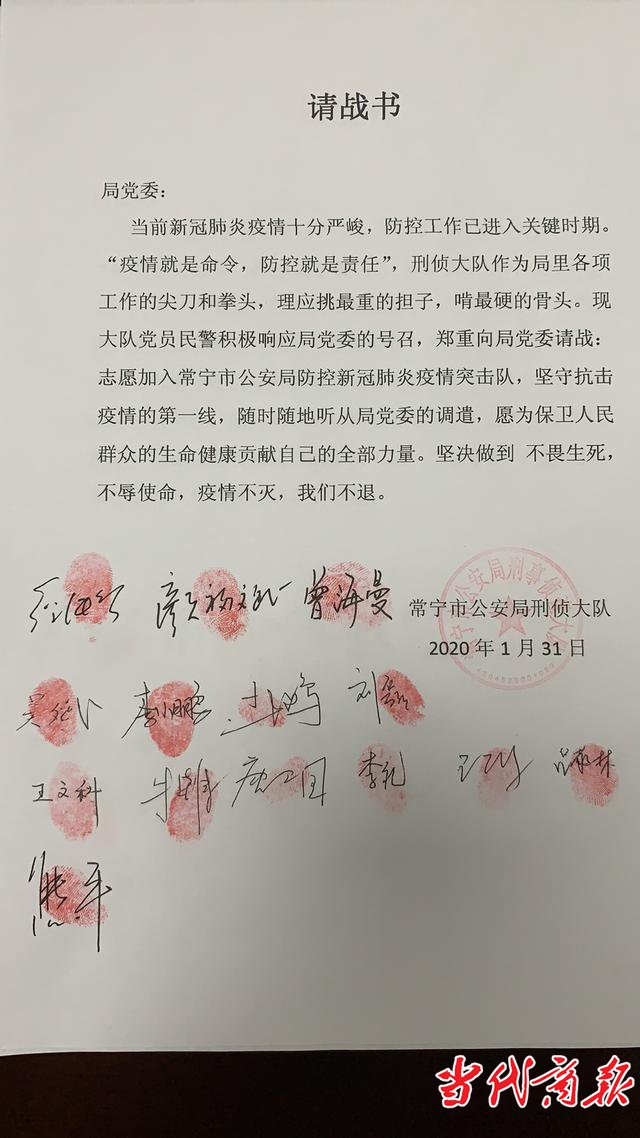 请战书
局党委：
当前新冠肺炎疫情十分严峻，防控工作已进入关键时期。
“疫情就是命令，防控就是责任”，刑侦大队作为局里各项
工作的尖刀和拳头，理应挑最重的担子，啃最硬的骨头。现
大队党员民警积极响应局党委的号召，郑重向局党委请战：
志愿加入常宁市公安局防控新冠肺炎疫情突击队，坚守抗击
疫情的第一线，随时随地听从局党委的调遣，愿为保卫人民
群众的生命健康贡献自己的全部力量。坚决做到 不畏生死，
不辱使命，疫情不灭，我们不退。
曾海曼
常宁市公安局刑侦大队
2020 年 1 月 31 日
常宁市公安局刑事侦查大队
李鹏 刘磊
王文科 李礼
熊军
当代商报